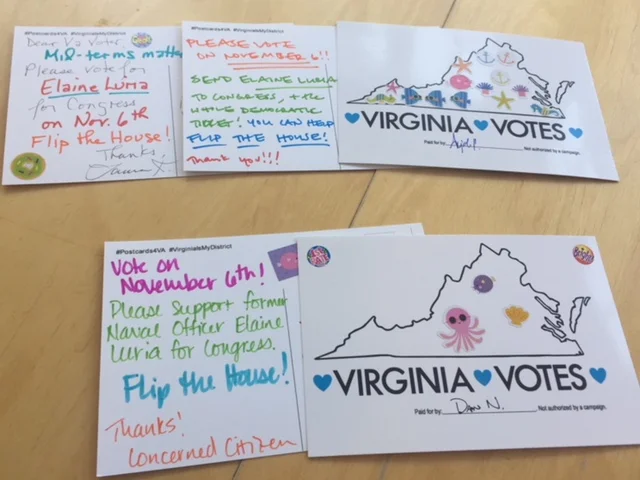 #Postcards4VA #VirginiaIsMyDistrict
Dear Va Voter,
Mid-terms matter
Please vote for
Elaine Luria
for Congress
on Nov. 6th
Flip the House!
Thanks,
Laura
#Postcards4VA #VirginiaIsMyDistrict
PLEASE VOTE
ON NOVEMBER 6!!
SEND ELAINE LURIA
TO CONGRESS, + the
WHOLE DEMOCRATIC
TICKET! YOU CAN HELP
FLIP THE HOUSE!
Thank you!!!
VIRGINIA VOTES
Paid for by: Not authorized by a campaign.
#Postcards4VA #VirginiaIsMyDistrict
Vote on
November 6th!
Please support former
Naval Officer Elaine
Luria for Congress.
Flip the House!
Thanks!
Concerned Citizen
VIRGINIA VOTES
Paid for by: Dan N. Not authorized by a campaign.